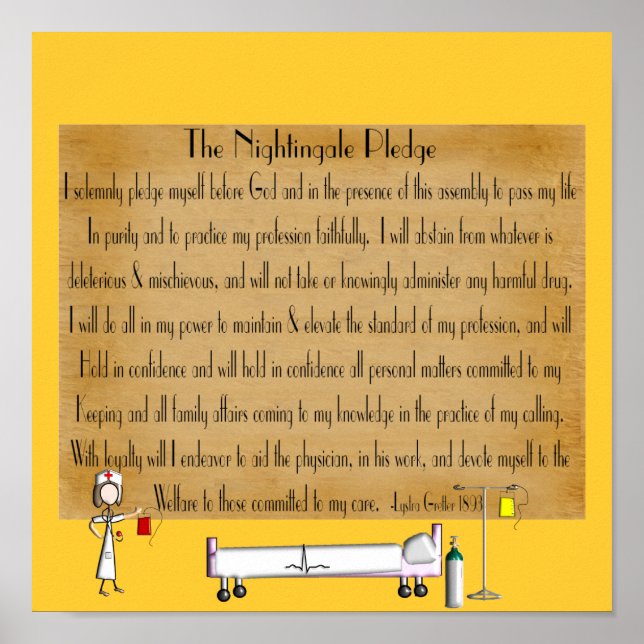 The Nightingale Pledge
I solemnly pledge myself before God and in the presence of this assembly to pass my life
In purity and to practice my profession faithfully. I will abstain from whatever is
deleterious & mischievous, and will not take or knowingly administer any harmful drug.
I will do all in my power to maintain & elevate the standard of my profession, and will
Hold in confidence and will hold in confidence all personal matters committed to my
Keeping and all family affairs coming to my knowledge in the practice of my calling.
With loyalty will I endeavor to aid the physician, in his work, and devote myself to the
Welfare to those committed to my care. -Lystra Gretter 1893